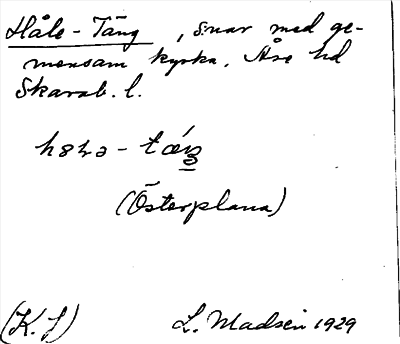 Håle-Täng, snar med ge-
mensam kyrka. Åse hd
Skarab. l.
(Österplana)
(K. J)
L. Madsén 1929